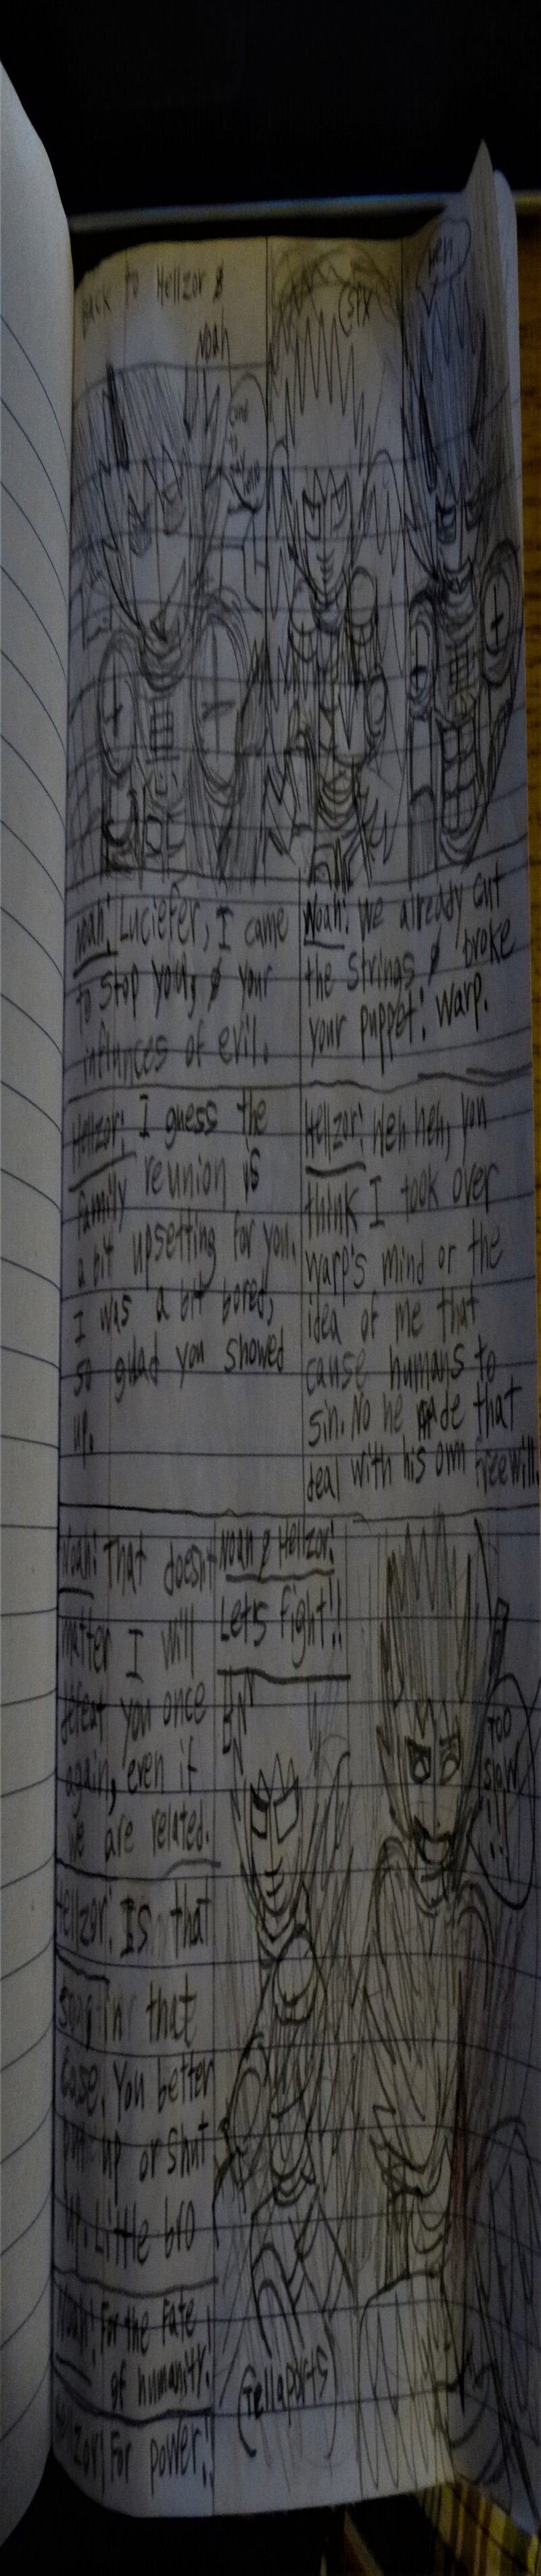 Back to Hellzor &
Noah
(sfx
heh
Noah: Luciefer, I came
to stop you, & your
influnces of evil.
Noah: We already cut
the strings & broke
your puppet: Warp.
Hellzor: I guess the
family reunion is
a bit upsetting for you.
I was a bit bored,
so glad you showed
up.
Hellzor: Heh heh, you
think I took over
Warp's mind or the
idea of me that
cause humans to
sin. No he made that
deal with his own freewill.
Noah: That doesn't
matter I will
defeat you once
again, even if
we are related.
Hellzor: Is that
so, in that
case, You better
put up or shut
up Little bro
Noah: For the Fate
of humanity!
Hellzor: For power!!
Noah & Hellzor:
Let's fight!!
(Tellaports)
Too
slow
!!